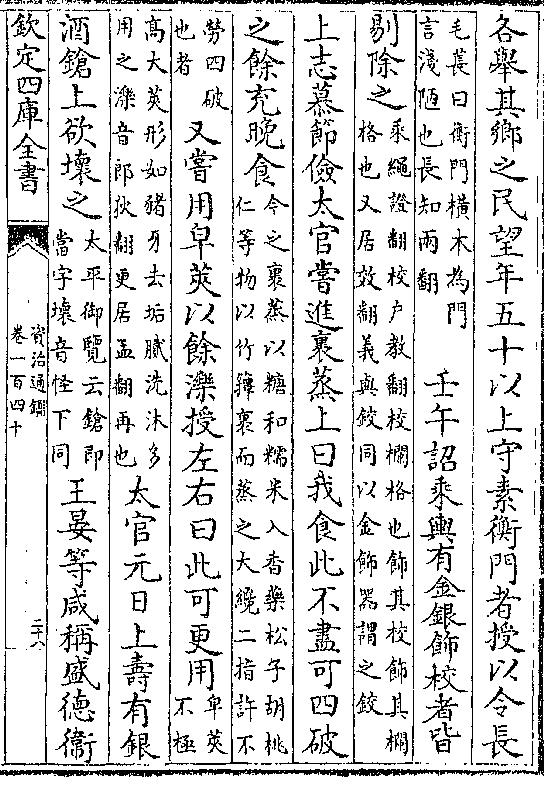 各舉其鄉之民望年五十以上守素衡門者授以令長
毛萇曰衡門橫木為門
言淺陋也長知兩翻
壬午詔乘輿有金銀飾校者皆
剔除之
乘繩證翻校户教翻校欄格也飾其校飾其欄
格也又居效翻義與鉸同以金飾器謂之鉸
上志慕節儉太官嘗進裹蒸上曰我食此不盡可四破
之餘充晚食
今之裹蒸以糖和糯米入香藥松子胡桃
仁等物以竹籜裹而蒸之大纔二指許不
勞四破
也者
又嘗用皁莢以餘濼授左右曰此可更用
皁莢
不極
高大莢形如豬牙去垢膩洗沐多
用之濼音郎狄翻更居孟翻再也
太官元日上壽有銀
酒鎗上欲壞之
太平御覽云鎗即
當字壞音怪下同
王晏等咸稱盛德衞
欽定四庫全書
資治通鑑
卷一百四十
二十八